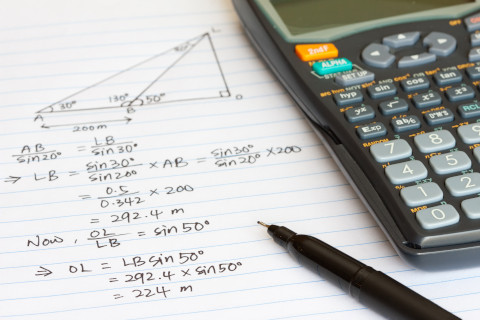 L
20°
A 30° 130° B 50° O
200m
AB/sin20° = LB/sin30°
⇒ LB = sin30°/sin20° × AB = sin30°/sin20° × 200
= 0.5/0.342 × 200
= 292.4 m
Now, OL/LB = sin50°
⇒ OL = LB sin 50°
= 292.4 × sin50°
= 224 m
2ndF
ALPHA
SET UP
hyp sin cos tan
Exp
RCL
7 8
4 5
1 2
0